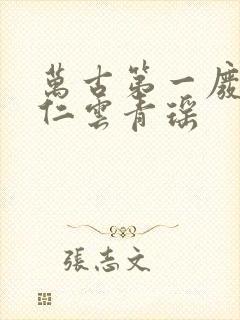 萬古第一廢
仁雲青瑶
張志文